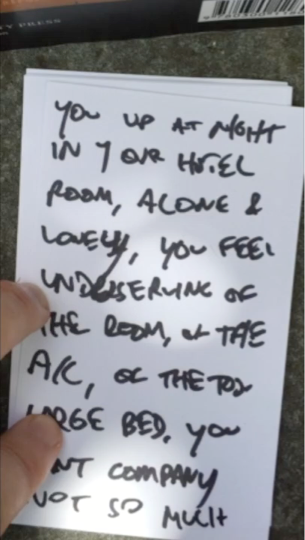 Y PRESS
YOU UP AT NIGHT
IN YOUR HOTEL
ROOM, ALONE &
LONELY, YOU FEEL
UNDESERVING OF
THE ROOM, OF THE
A/C, OF THE TOO
LARGE BED. YOU
NT COMPANY
NOT SO MUCH